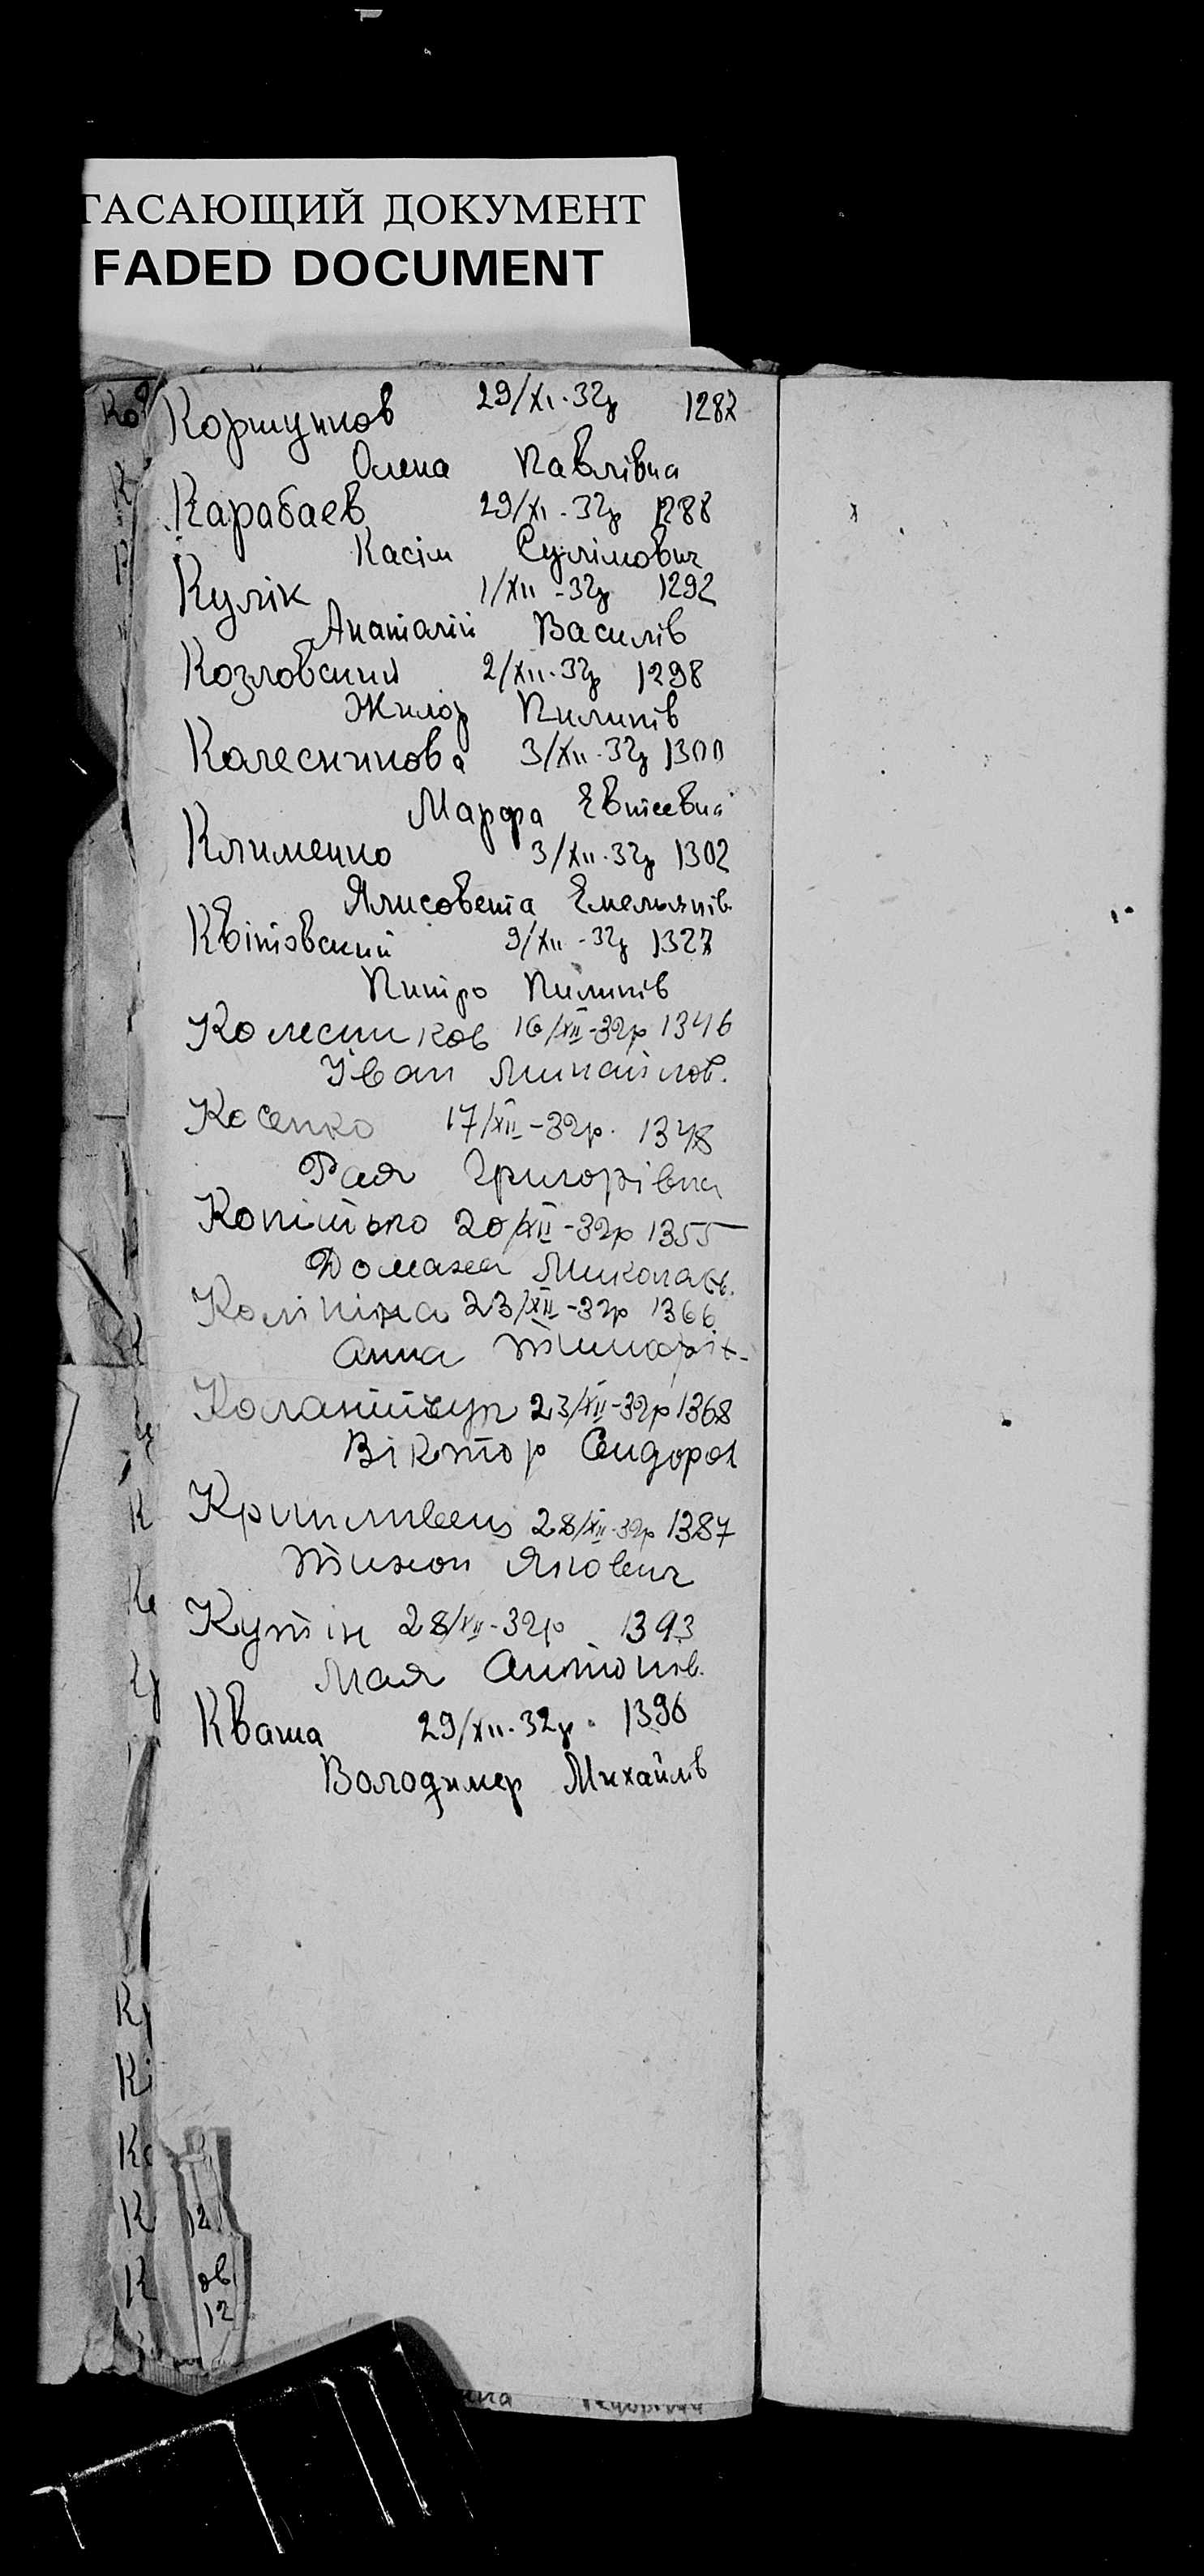 ГАСАЮЩИЙ ДОКУМЕНТ
FADED DOCUMENT
Коршунков 29/XI-32р 1287
Олена Павлівна
Карабаев 29/XI-32р 1288
Касім Сулімович
Кулік 1/XII-32р 1292
Анаталій Василів
Козловский 2/XII-32р 1298
Пилипів
Калесникова 3/XII-32р 1300
Марфа Евтеевна
Клименко 3/XII-32р 1302
Ялисовета Емельянів
Квітовский 9/XII-32р 1327
Питро Пилипів
Колесников 16/XII-32р 1346
Іван Михайлов.
Косенко 17/XII-32р. 1348
Рая Григорівна
Копітько 20/XII-32р 1355
Домаха Миколаев.
23/XII-32р 1366
Анна
23/XII-32р 1368
Віктор Сидоров
28/XII-32р 1387
Тихон Якович
Кутін 28/XII-32р 1393
Мая Антонів.
Кваша 29/XII-32р. 1396
Володимер Михайлів